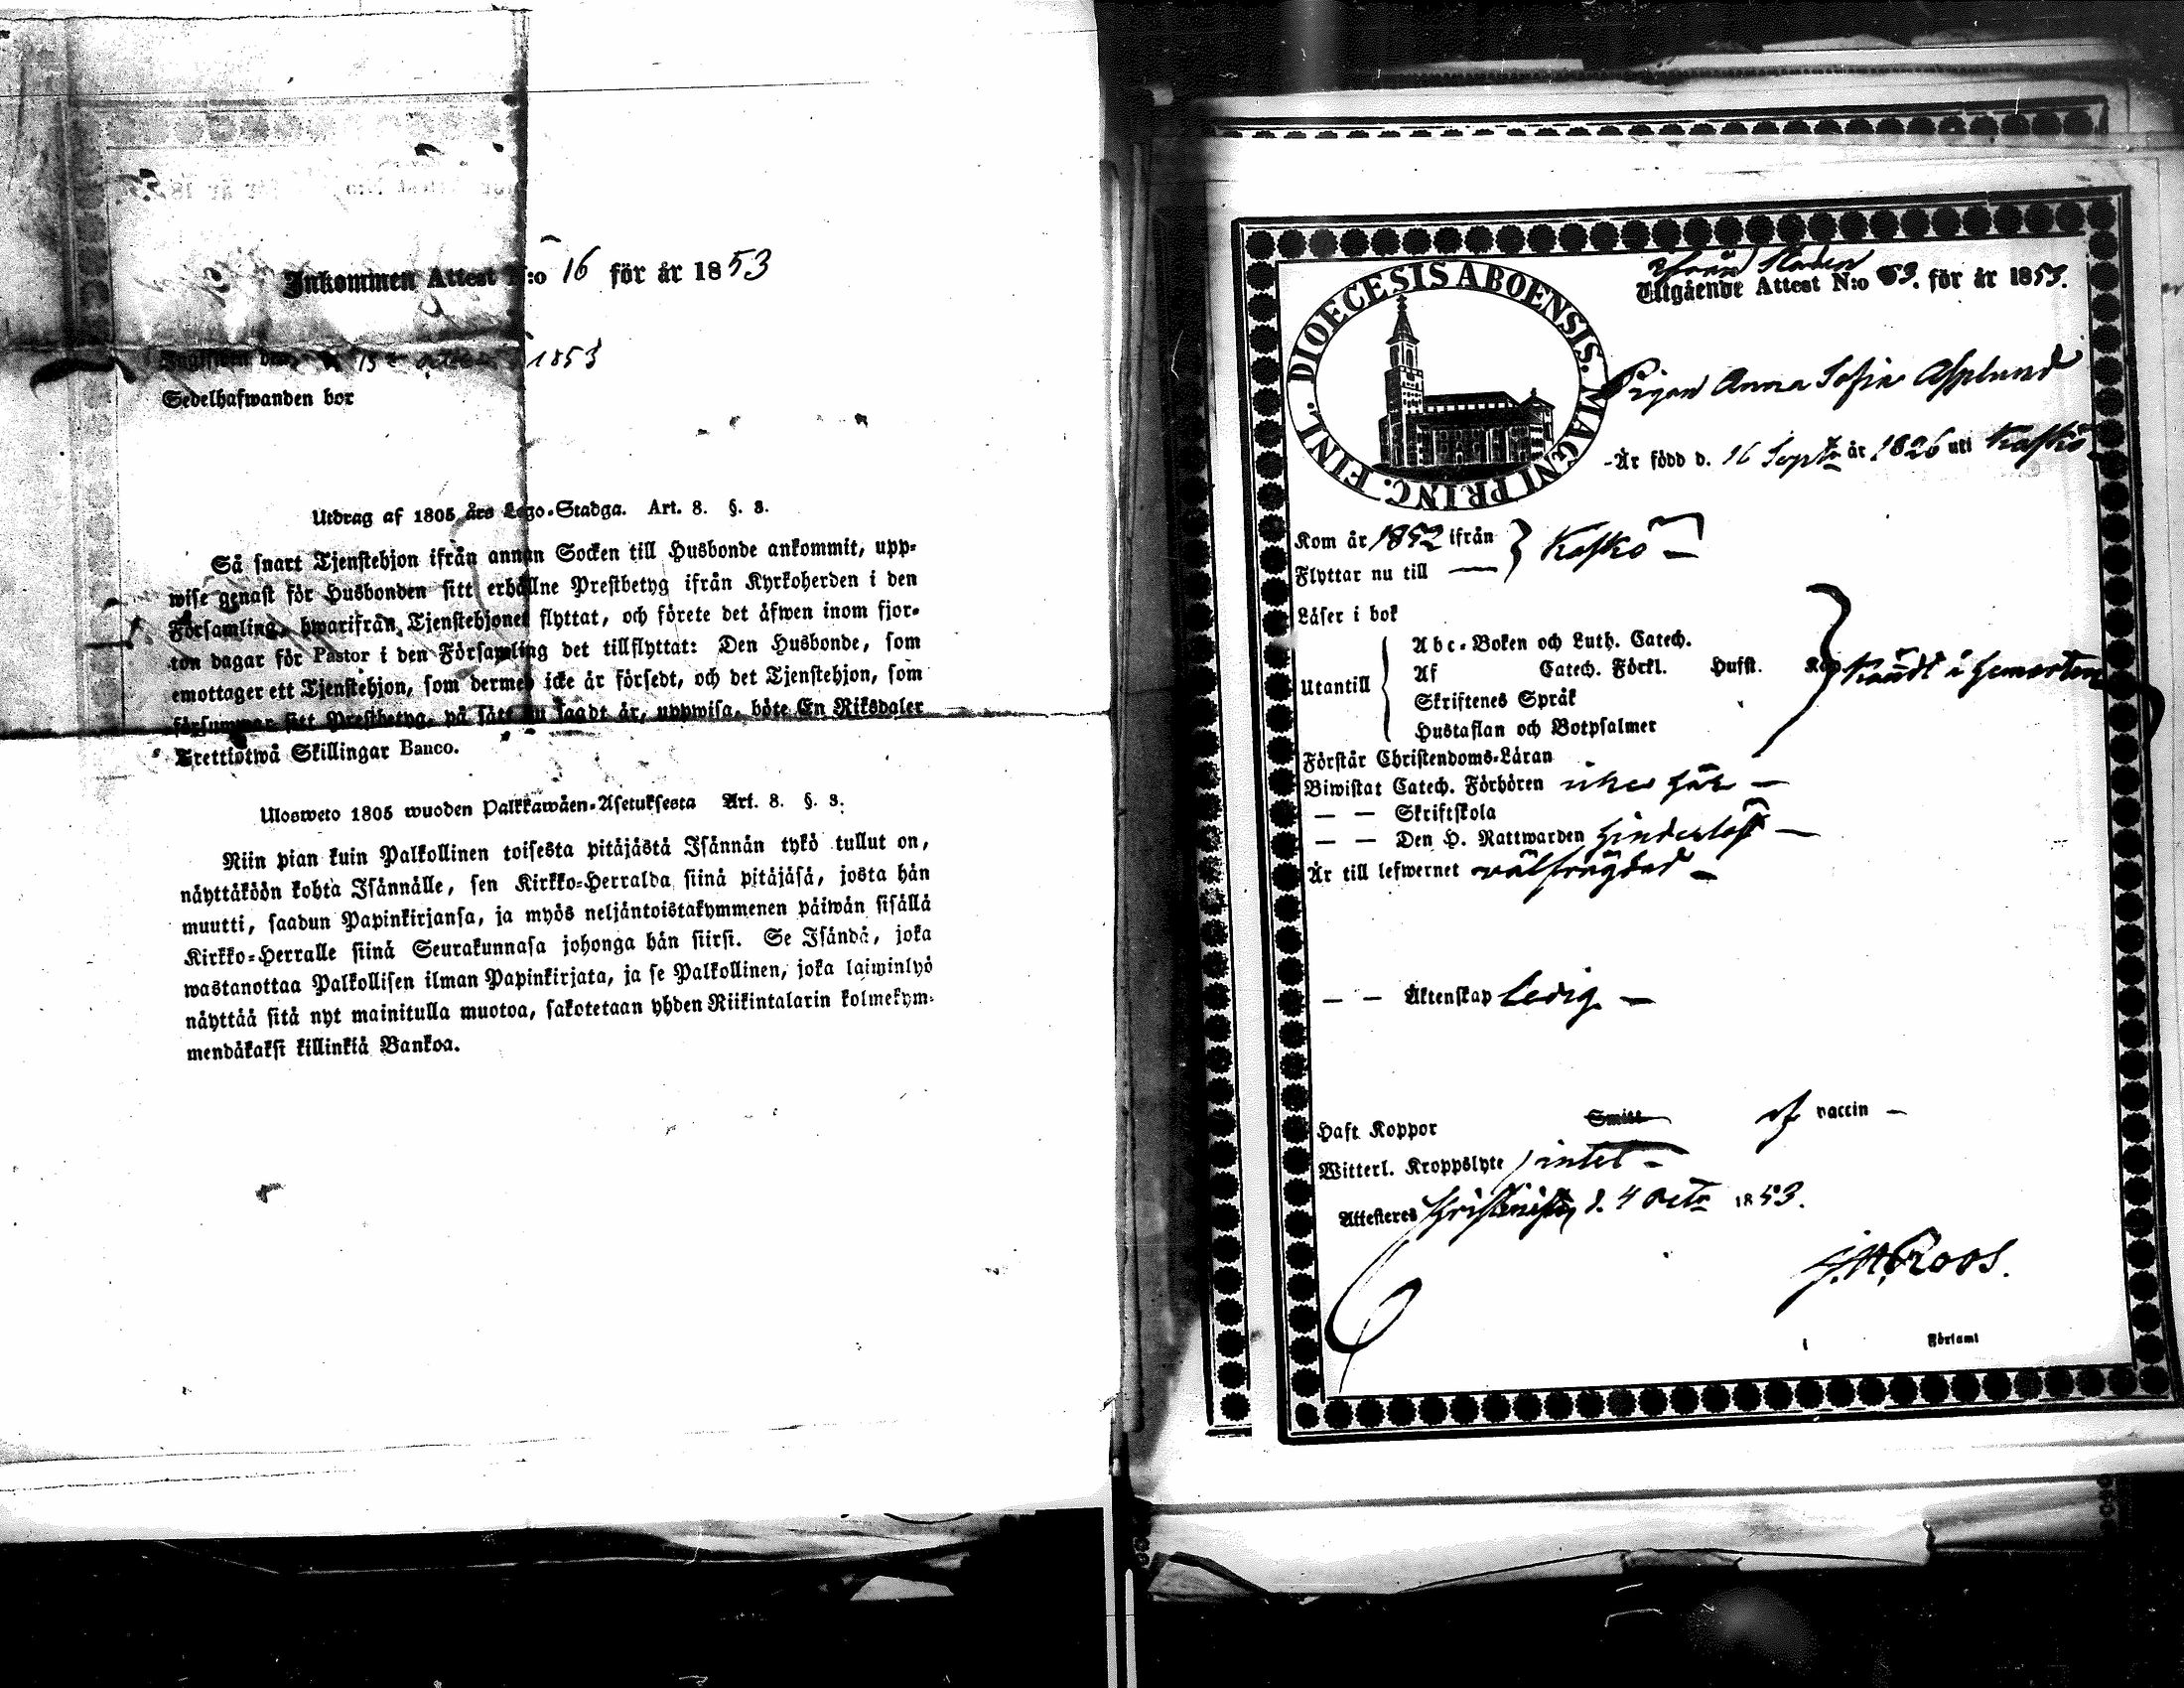 Inkommen Attest N:o 16 för år 1853
15 1853
Sedelhafwanden bor
Utdrag af 1805 års Lego-Stadga. Art. 8. §. 3.
Så snart Tjenstehjon ifrån annan Socken till Husbonde ankommit, upp-
wise genast för Husbonden sitt erhållne Prestbetyg ifrån Kyrkoherden i den
Församling, hwarifrån Tjenstehjonet flyttat, och förete det äfwen inom fjor-
ton dagar för Pastor i den Församling det tillflyttat: Den Husbonde, som
emottager ett Tjenstehjon, som dermed icke är försedt, och det Tjenstehjon, som
försummar sitt Prestbetyg, på sätt nu sagdt är, uppwisa, böte En Riksdaler
Trettiotwå Skillingar Banco.
Ulosweto 1805 wuoden Palkkawäen-Asetuksesta Art. 8. §. 3.
Niin pian kuin Palkollinen toisesta pitäjästä Isännän tykö tullut on,
näyttäköön kohta Isännälle, sen Kirkko-Herralda siinä pitäjäsä, josta hän
muutti, saadun Papinkirjansa, ja myös neljäntoistakymmenen päiwän sisällä
Kirkko-Herralle siinä Seurakunnasa johonga hän siirsi. Se Isändä, joka
wastanottaa Palkollisen ilman Papinkirjata, ja se Palkollinen, joka laiminlyö
näyttää sitä nyt mainitulla muotoa, sakotetaan yhden Riikintalarin kolmekym-
mendäkaksi killinkiä Bankoa.
DIOECESIS ABOENSIS. MAGNI PRINC. FINL.
ifrån Staden
Utgående Attest N:o 53. för år 1853.
Pigan Anna Sofia Asplund
Är född d. 16 Sept. år 1826 uti Kaskö
Kom år 1852 ifrån
Flyttar nu till — Kaskö —
Läser i bok
Utantill
Abc-Boken och Luth. Catech.
Af Catech. Förkl. Hufst.
Skriftenes Språk
Hustaflan och Botpsalmer
Förstår Christendoms-Läran
Biwistat Catech. Förhören icke här —
— — Skriftskola
— — Den H. Nattwarden hinderlös —
Är till lefwernet välfrägdad —
— — Äktenskap Ledig —
Haft Koppor Smitt af vaccin —
Witterl. Kroppslyte intet —
Attesteras Christinestad d. 4 Oct. 1853.
Roos.
i Församl